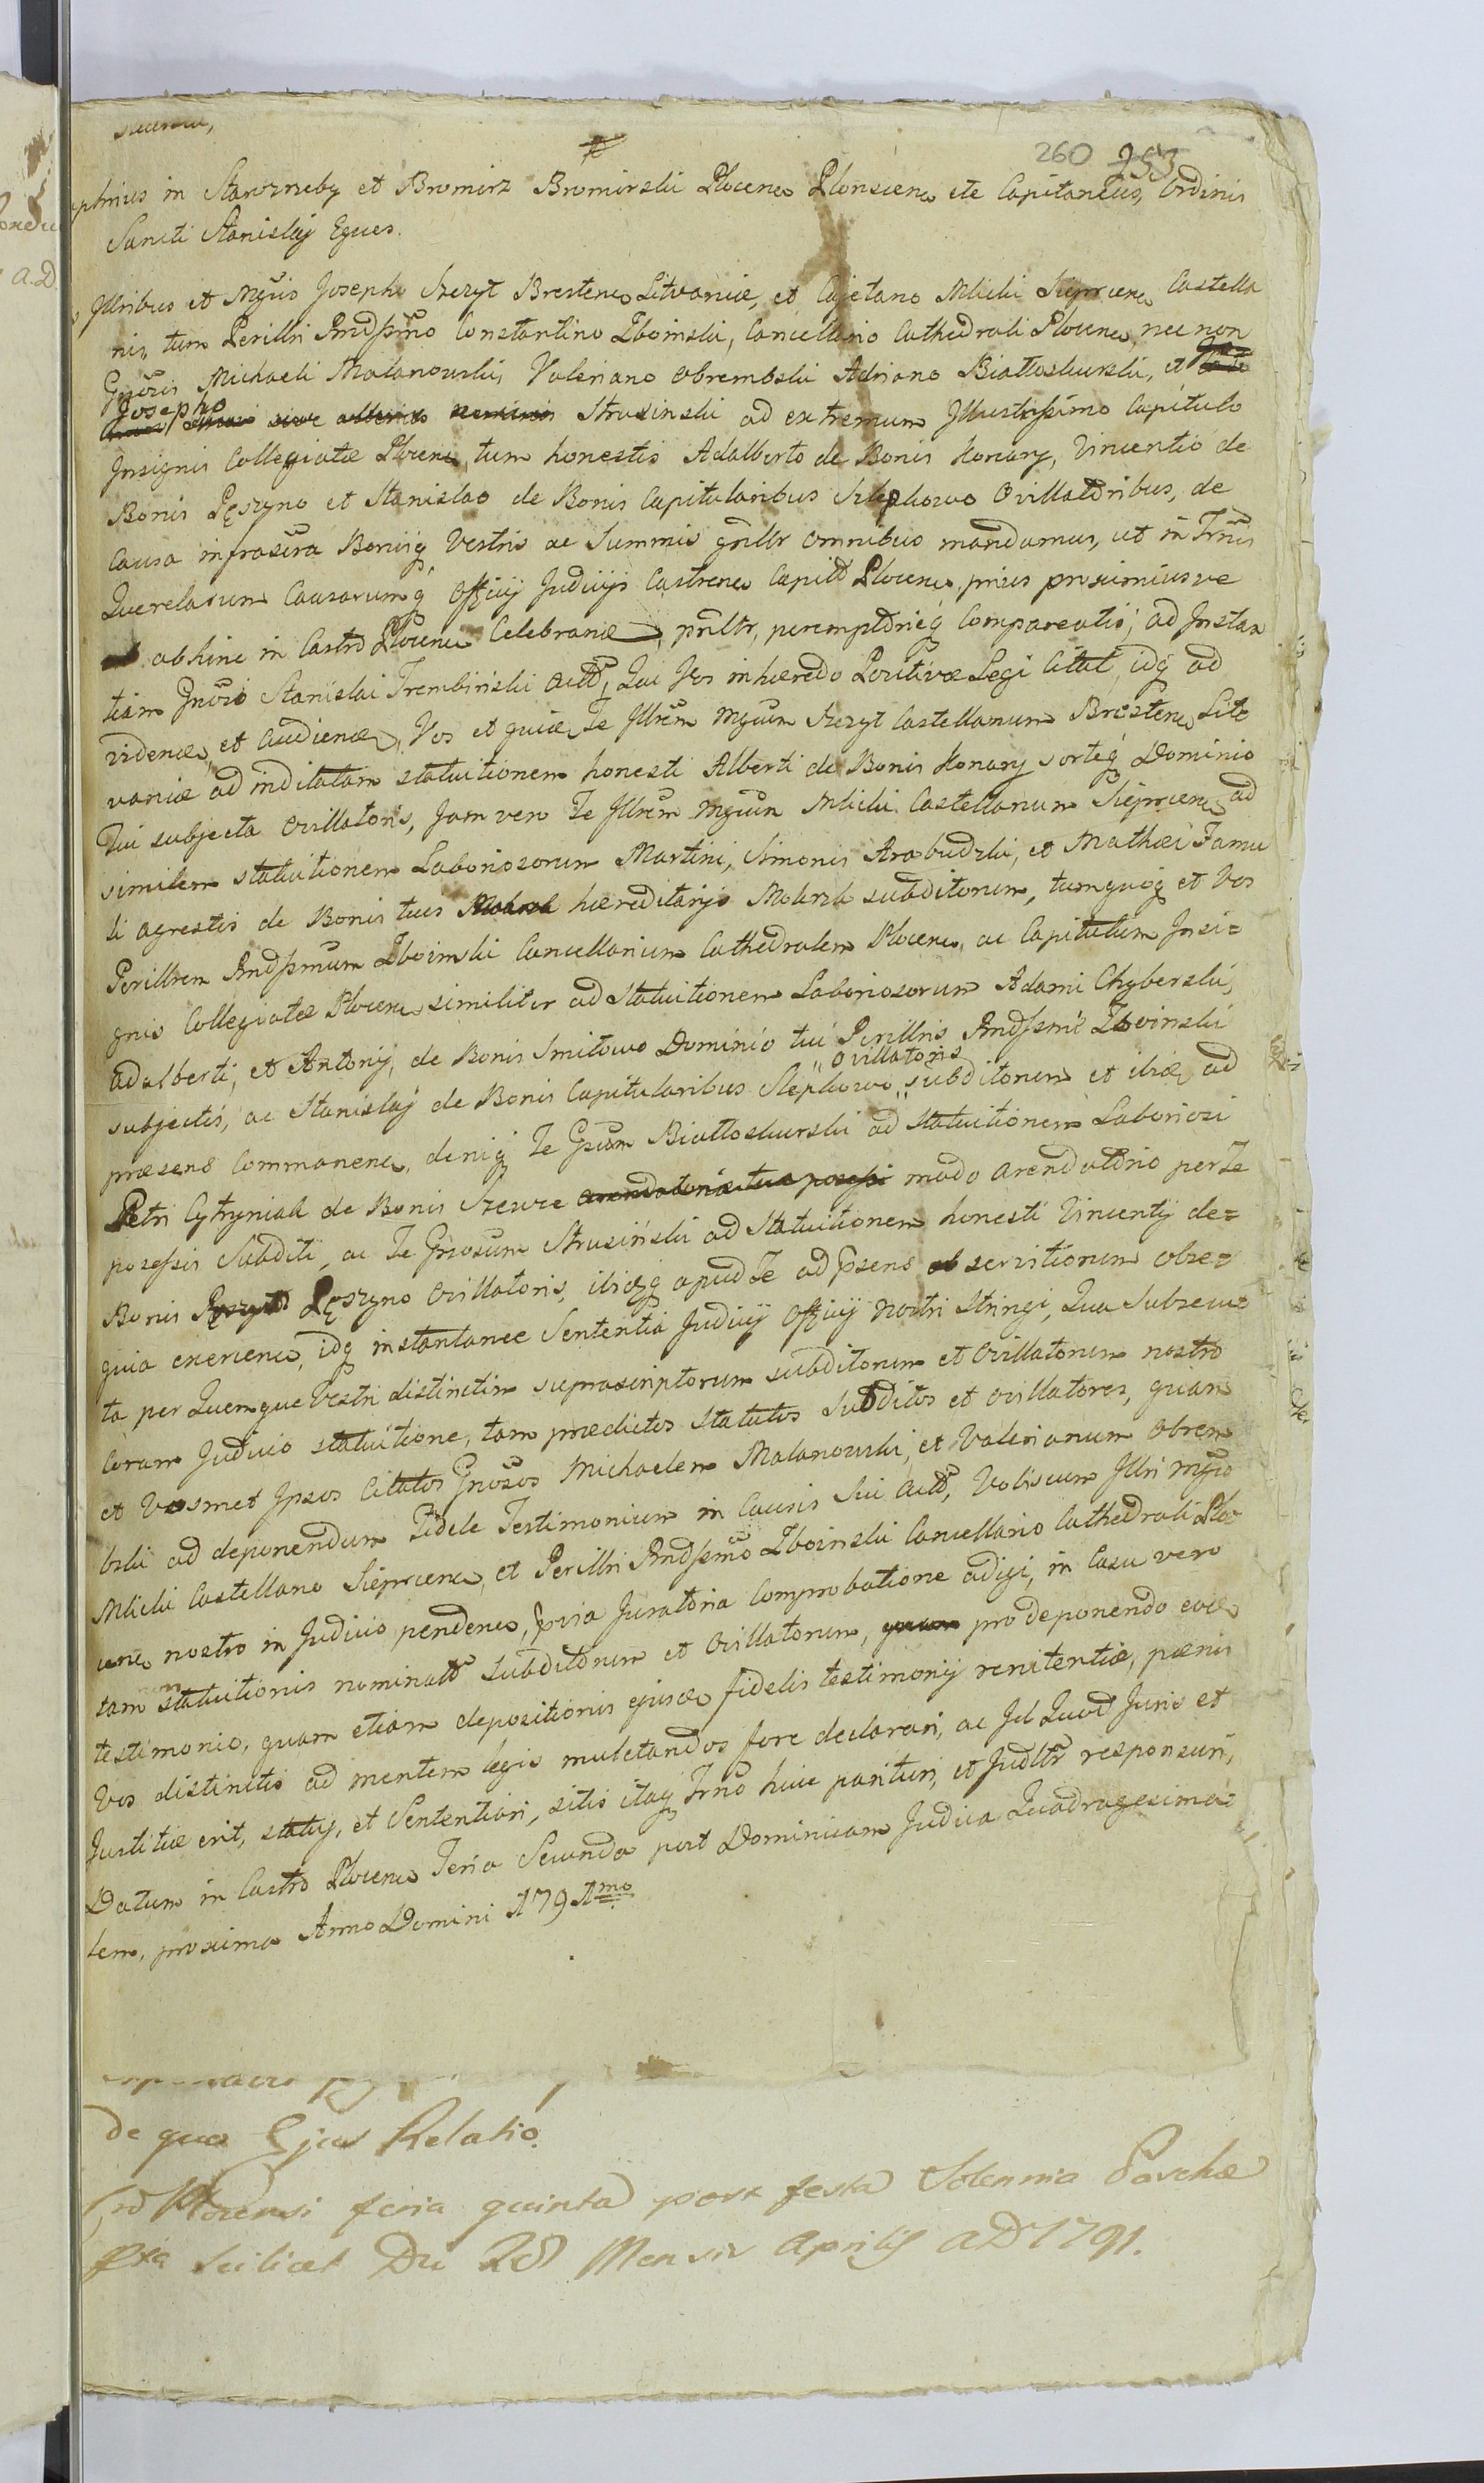 260 253
in Starorzreby et Bromirz Bromirski Plocens Plonscens ete Capitaneus, Ordinis
Sancti Stanislaj Eques.
Jllribus et Mgcis Josepho Szczyt Brestens Litvaniæ, et Cajetano Mlicki Sieprcens Castella
nis, tum Perillri Rndssmo Constantino Zboinski, Cancellario Cathedrali Plocens, nec non
Gnosis Michaeli Malanowski, Valeriano Obrembski Adriano Białłoskurski, et
Josepho sive Strusinski ad extremum Jllustrissimo Capitulo
Jnsignis Collegiatæ Plocens, tum honestis Adalberto de Bonis Konary, Vincentio de
Bonis Lęszyno et Stanislao de Bonis Capitularibus Szlephowo Ovillatoribus, de
Causa infrascra Bonisq Vestris ac Summis gnllr omnibus mandamus, ut in Trnis
Querelarum Causarumq Officij Judicijs Castrens Capit Plocens, prius proximiusve
abhinc in Castro Plocens Celebran, prnltr, peremptorieq Compareatis, ad Jnstan
tiam Gnosi Stanislai Trembinski act, Qui Vos inhærendo Positivæ Legi Citat, idq ad
videndu, et Audiend, Vos et quide Te Jllrem Mgcum Szczyt Castellanum Brestens Lit
vaniæ ad inditatam statuitionem honesti Alberti de Bonis Konary sorteq Dominio
Tui subjecta Ovillatoris, Jam vero Te Jllrem Mgcum Mlicki Castellanum Sieprcens ad
similem statuitionem Laboriosorum Martini, Simonis Arabudzki, et Mathæi Famu
li agrestis de Bonis tuis hæreditarijs Mokrzk subditorum, tumquoq et Vos
Perillrem Rndssmum Zboinski Cancellarium Cathedralem Plocens, ac Capitulum Jnsi=
gnis Collegiatæ Plocens similiter ad Statuitionem Laboriosorum Adami Chyberski,
Adalberti, et Antonij, de Bonis Smiłowo Dominio tui Perillris Rndssmi Zboinski
subjectis, ac Stanislaj de Bonis Capitularibus Slephowo " Ovillatoris " subditorum et ibid ad
præsens Commanen, deniq Te Gnosum Białłoskurski ad Statuitionem Laboriosi
Petri Cytryniak de Bonis Szewce arendatoriæ tuæ possess modo arendatorio per Te
possessis Subditi, ac Te Gnosum Strusiński ad Statuitionem honesti Vincentij de=
Bonis Lęszyno Ovillatoris, ibidq apud Te ad psens servitiorum obse=
quia exercens, idq instantanee Sententia Judicij Officij nostri Stringi, Qua Subsecu=
ta per Quemque Vestri distinctim suprascriptorum subditorum et Ovillatorum nostro
Coram Judicio statuitione, tam prædictos Statutos Subditos et ovillatores, quam
et Vosmet Jpsos Citatos Gnosos Michaelem Malanowski, et Valerianum Obrem
bski ad deponendum Fidele Testimonium in Causis Sui Act, Vobiscum Jllri Mgco
Mlicki Castellano Sieprcens, et Perillri Rndssmo Zboinski Cancellario Cathedrali Plo
cens nostro in Judicio pendens, pvia Juratoria Comprobatione adigi, in Casu vero
tam non statuitionis nominat Subditorum et Ovillatorum, pro deponendo eod
testimonio, quam etiam depositionis ejusd fidelis testimonij renitentiæ, pænis
Vos distinctis ad mentem legis mulctandos fore declarari, ac Jd Quod Juris et
Justitiæ erit, statuj, et Sententiari, sitis itaq Trno huic parituri, et Judltr responsuri,
Datum in Castro Plocens Feria Secunda post Dominicam Judica Quadragesima=
lem, proxima Anno Domini 1791mo
de quo Ejus Relatio.
feria quinta post festa Solennia Paschæ
scilicet Die 28 Mensis Aprilis AD 1791.